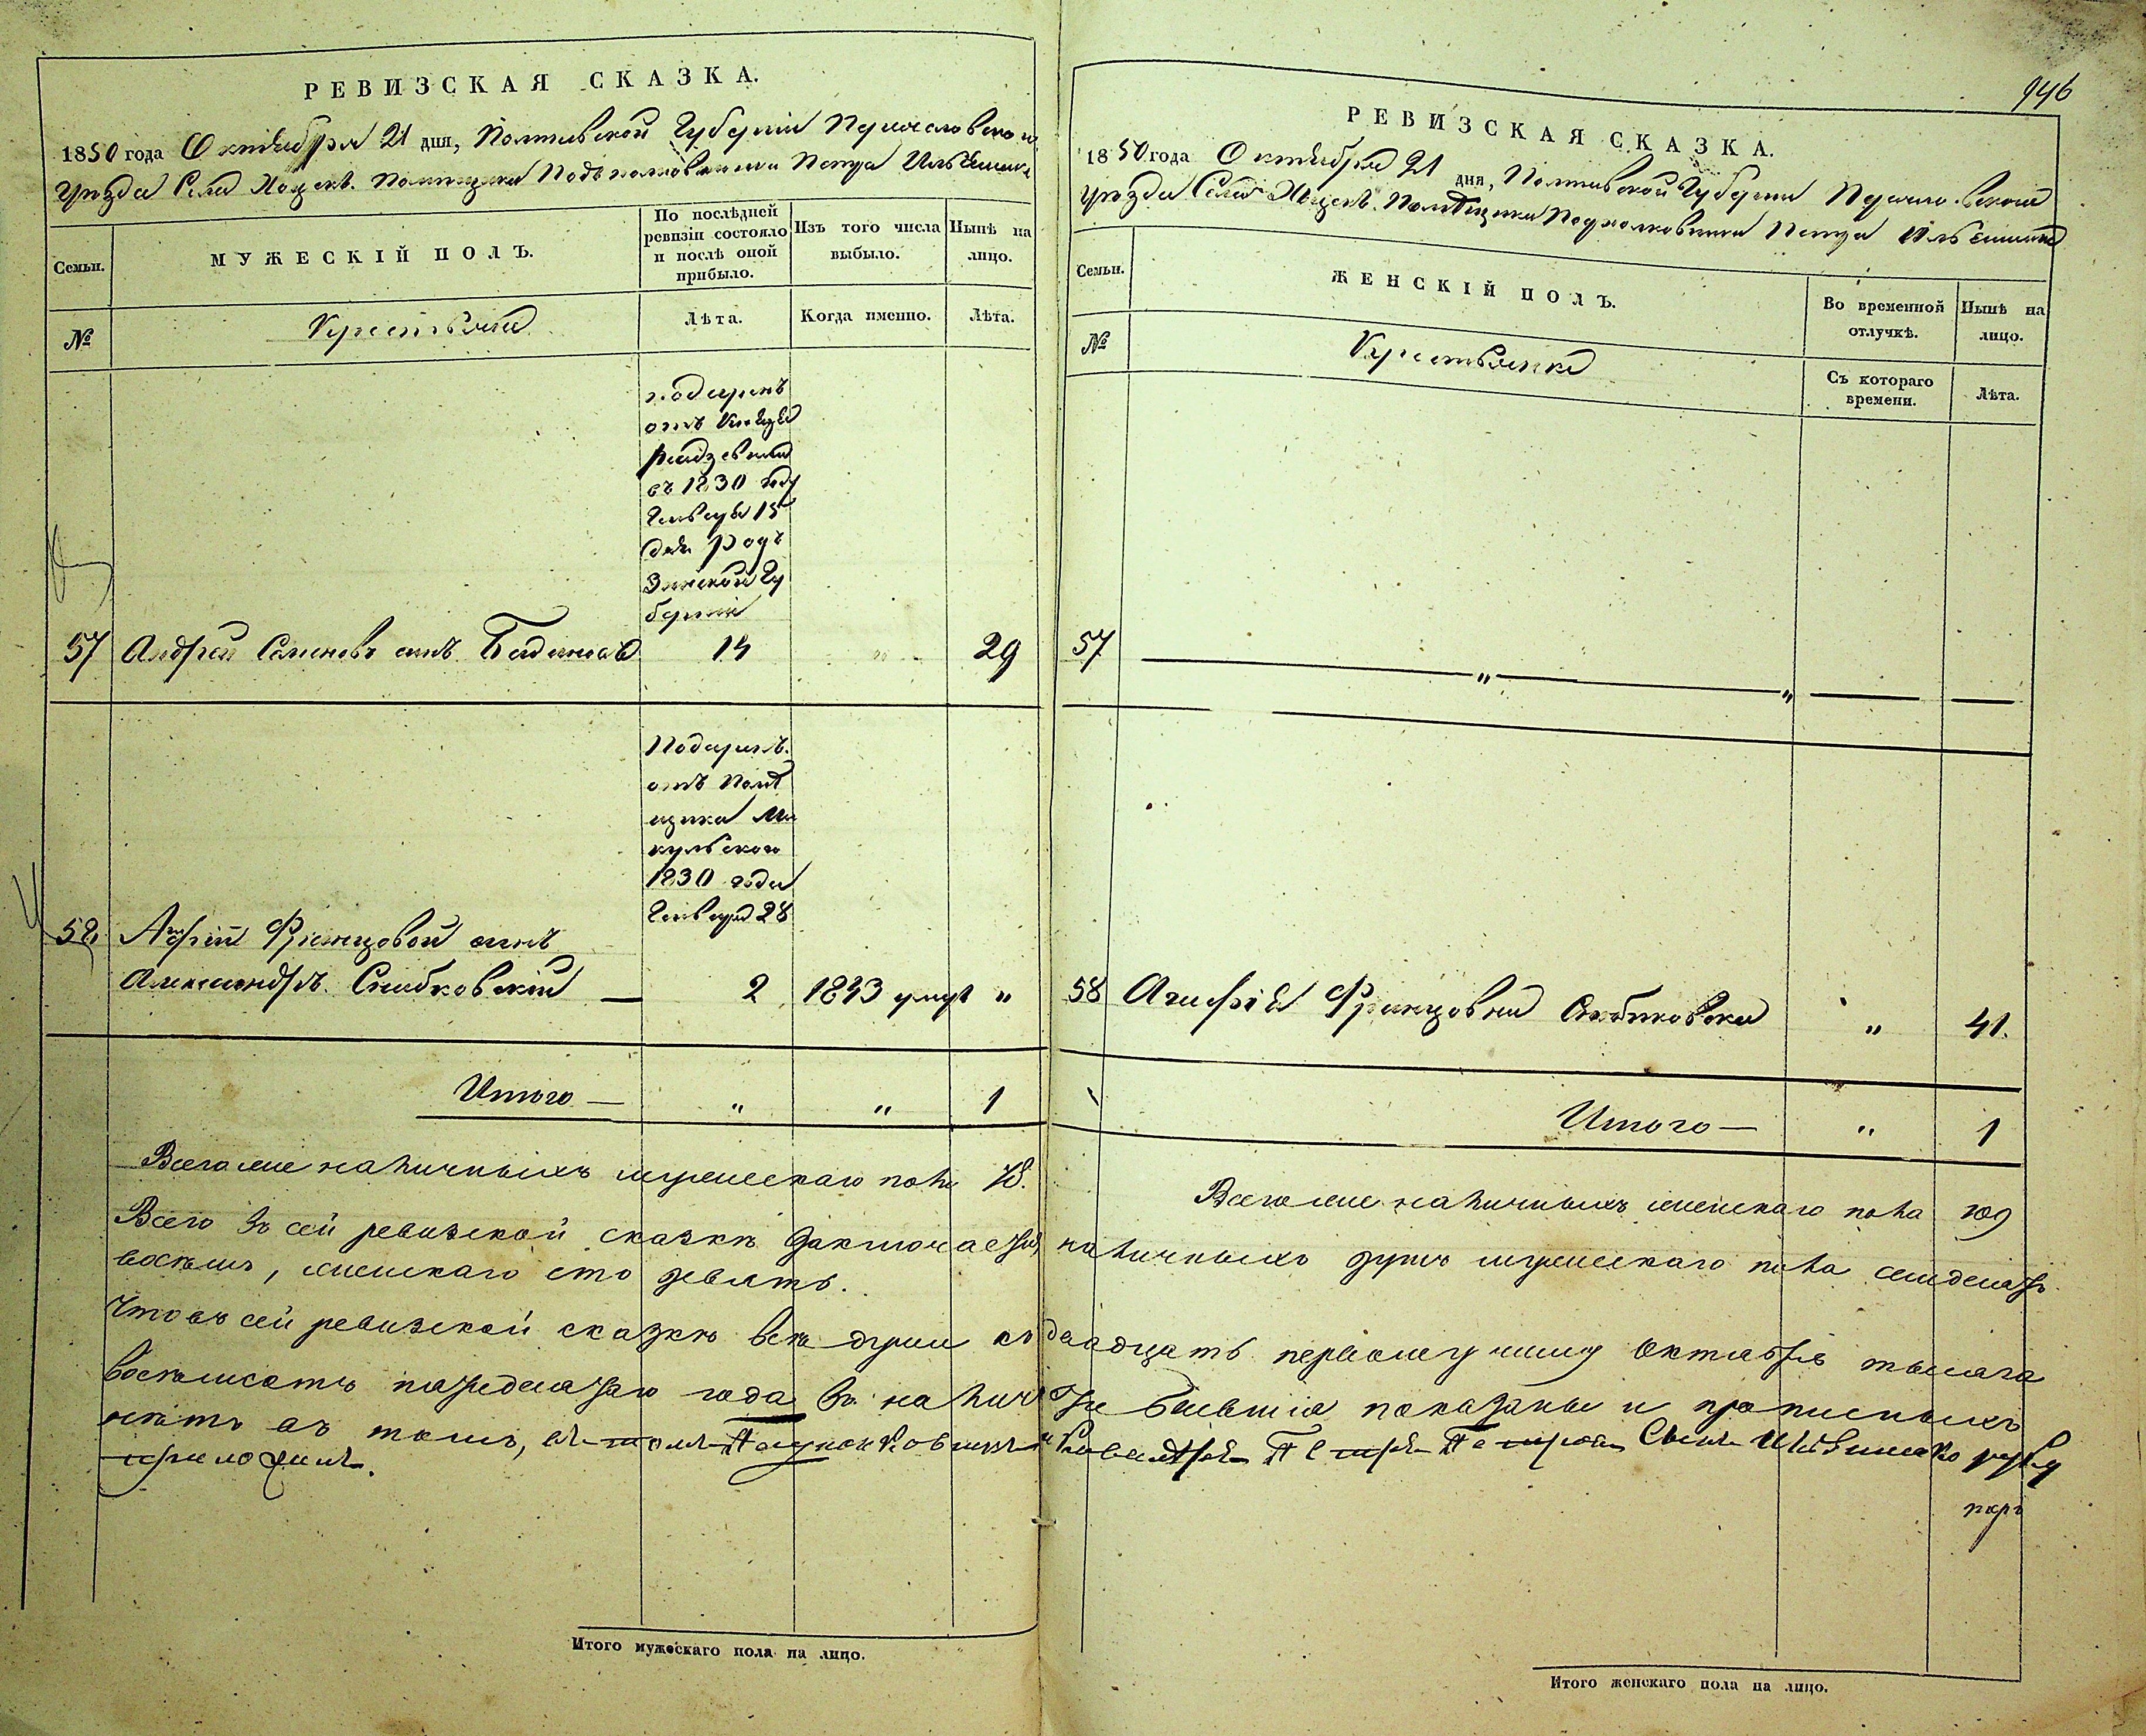 946
РЕВИЗСКАЯ СКАЗКА.
1850 года Октября 21 дня, Полтавской Губернии Переяславского
Уезда Села Хоцекъ. Помещика Подполковника Петра Ильяшенка
Семьи.
МУЖЕСКІЙ ПОЛЪ.
По послѣдней ревизіи состояло и послѣ оной прибыло.
Изъ того числа выбыло.
Нынѣ на лицо.
№
Крестьяне
Лѣта.
Когда именно.
Лѣта.
подаренъ
отъ Князя
въ 1830 году
Генваря 15
дня
Гу
берніи
57 Андрей Семеновъ сынъ 15 " 29
Подаренъ.
отъ Помѣ
щика Ми
кульского
1830 года
Генваря 28
58. Францовой сынъ
Александръ. 2 1843 умре "
Итого — " " 1
Всего же наличныхъ мужескаго пола 78.
РЕВИЗСКАЯ СКАЗКА.
1850 года Октября 21 дня, Полтавской Губернии Переяславского
уезда Села Хоцекъ. Помѣщика Подполковника Петра Ильяшенка
Семьи.
ЖЕНСКІЙ ПОЛЪ.
Во временной отлучкѣ.
Нынѣ на лицо.
№
Крестьянки
Съ котораго времени.
Лѣта.
57 " "
58 Агафія Францовна " 41.
Итого — " 1
Всего же наличныхъ женскаго пола 109
Всего въ сей ревизской сказкѣ заключается наличныхъ душъ мужескаго пола семдесятъ
восемь, женскаго сто девять.
Что въ сей ревизской сказкѣ всѣ души къ двадцать первому числу Октября тысяча
восемьсотъ пятдесятаго года въ наличности бывшія показаны и прописныхъ
нѣтъ въ томъ, Подполковникъ и Кавалеръ Петръ Петровъ Сынъ Ильяшенко руку
приложилъ.
Итого мужескаго пола на лицо.
Итого женскаго пола на лицо.